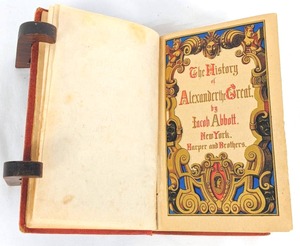 The History
of
Alexander the Great.
by
Jacob Abbott.
New York.
Harper and Brothers.